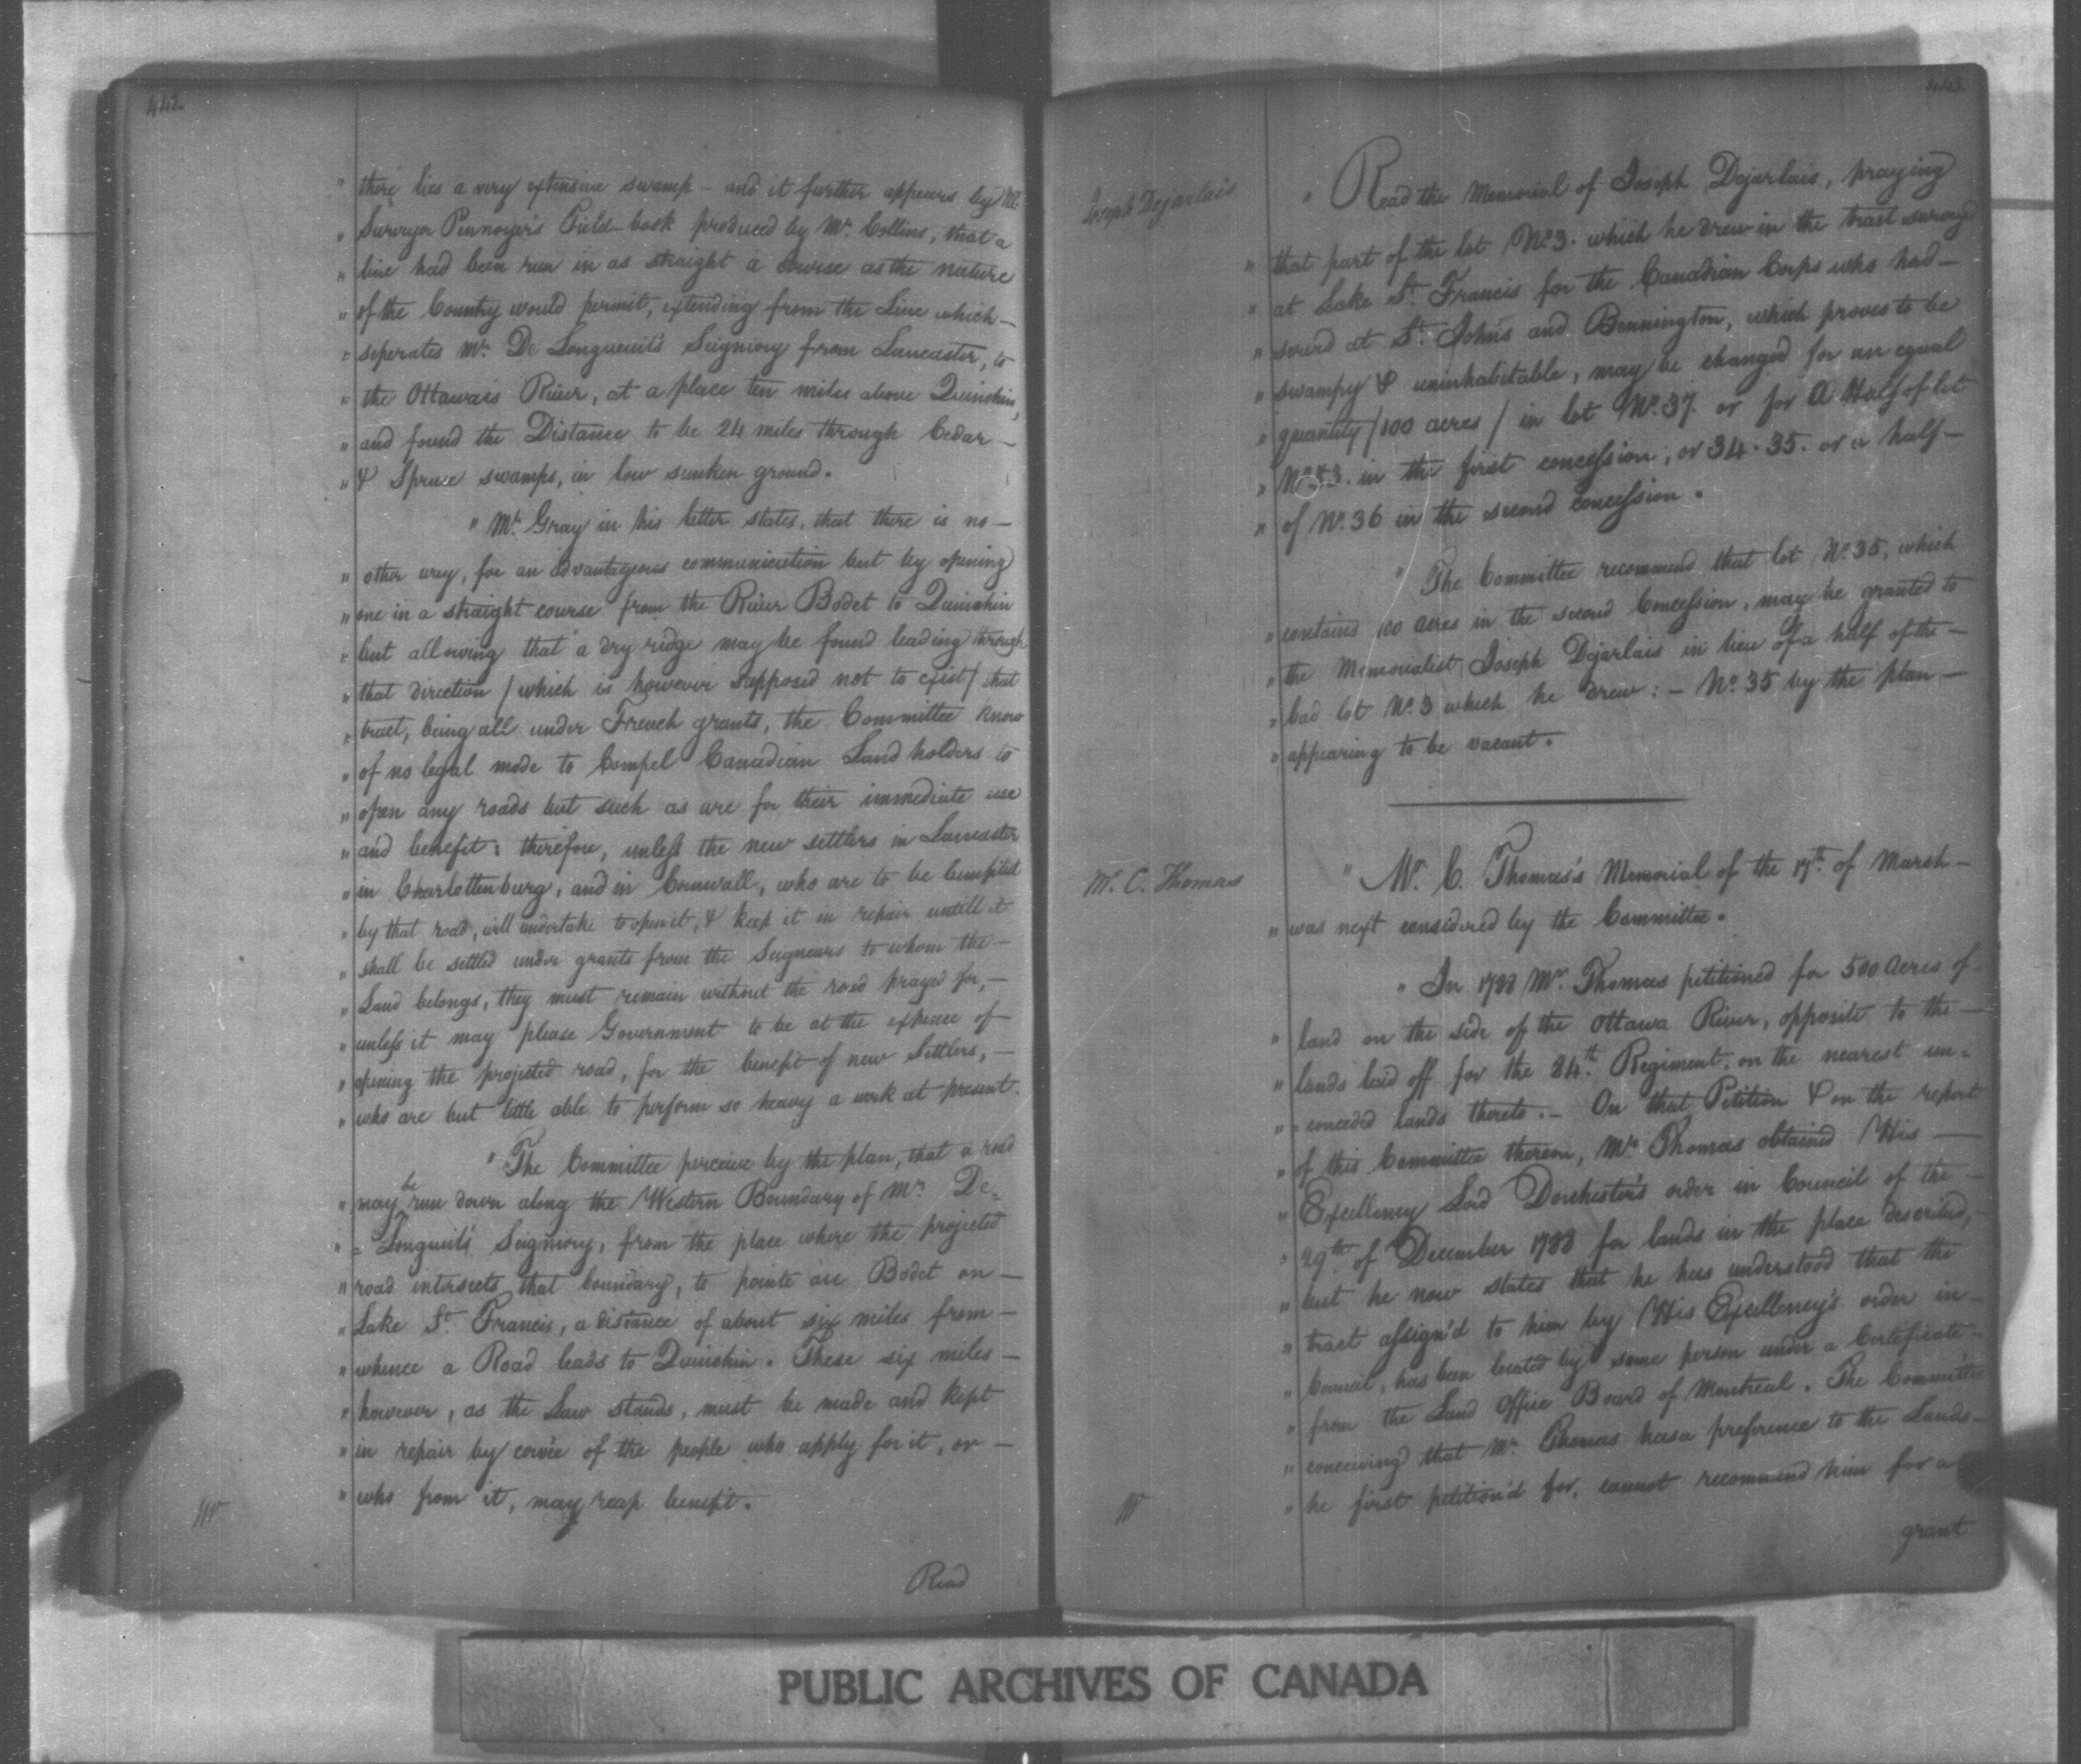 442
" there lies a very extensive swamp - and it further appears by Mr.
" Surveyor Pennoyer's Field-book produced by Mr. Collins, that a
" line had been run in as straight a course as the nature
" of the Country would permit, extending from the Line which -
" seperates Mr. De Longueuil's Seigniory from Lancaster, to
" the Ottawais River, at a place ten miles above Quinchin,
" and found the Distance to be 24 miles through Cedar -
" & Spruce swamps, in low sunken ground.
" Mr. Gray in his letter states, that there is no -
" other way, for an advantageous communication but by opening
" one in a straight course from the River Bodet to Quinchin
" but allowing that a dry ridge may be found leading through
" that direction / which is however supposed not to exist / that
" tract, being all under French grants, the Committee know
" of no legal mode to Compel Canadian Land holders to
" open any roads but such as are for their immediate use
" and benefit: therefore, unless the new settlers in Lancaster
" in Charlottenburg, and in Cornwall, who are to be benefited
" by that road, will undertake to open it, & keep it in repair untill it
" shall be settled under grants from the Seigneurs to whom the -
" Land belongs, they must remain without the road prayed for, -
" unless it may please Government to be at the expence of
" opening the projected road, for the benefit of new Settlers, -
" who are but little able to perform so heavy a work at present.
" The Committee perceive by the plan, that a road
" may be run down along the Western Boundary of Mr. De=
" = Longueil's Seigniory, from the place where the projected
" road intersects that boundary, to pointe au Bodet on -
" Lake St. Francis, a distance of about six miles from -
" whence a Road leads to Quinchin. These six miles -
" however, as the Law stands, must be made and kept
" in repair by corvée of the people who apply for it, or -
" who from it, may reap benefit.
Read
443
Joseph Dejarlais
" Read the Memorial of Joseph Dejarlais, praying
" that part of the lot No. 3. which he drew in the tract surveyed
" at Lake St. Francis for the Canadian Corps who had -
" served at St. Johns and Bennington, which proves to be
" swampy & uninhabitable, may be changed for an equal
" quantity / 100 acres / in lot No. 37. or for a Half of lot
" in the first concession, or 34. 35. or a half -
" of No. 36 in the second concession.
" The Committee recommend that lot No. 35, which
" contains 100 acres in the second Concession, may be granted to
" the Memorialist, Joseph Dejarlais in lieu of a half of the -
" bad lot No. 3 which he drew: - No. 35 by the plan -
" appearing to be vacant.
Mr. C. Thomas
" Mr. C. Thomas's Memorial of the 17th of March -
" was next considered by the Committee.
" In 1788 Mr. Thomas petitioned for 500 Acres of
" land on the side of the Ottawa River, opposite to the -
" lands laid off for the 84th. Regiment, on the nearest un=
" = conceded lands thereto. - On that Petition & on the report
" of this Committee thereon, Mr. Thomas obtained His -
" Excellency Lord Dorchester's order in Council of the -
" 29th. of December 1788 for lands in the place described, -
" but he now states that he has understood that the
" tract assign'd to him by His Excellency's order in -
" Council, has been located by some person under a Certificate -
" from the Land Office Board of Montreal. The Committee
" conceiving that Mr. Thomas has a preference to the Lands -
" he first petition'd for, cannot recommend him for a
grant
PUBLIC ARCHIVES OF CANADA